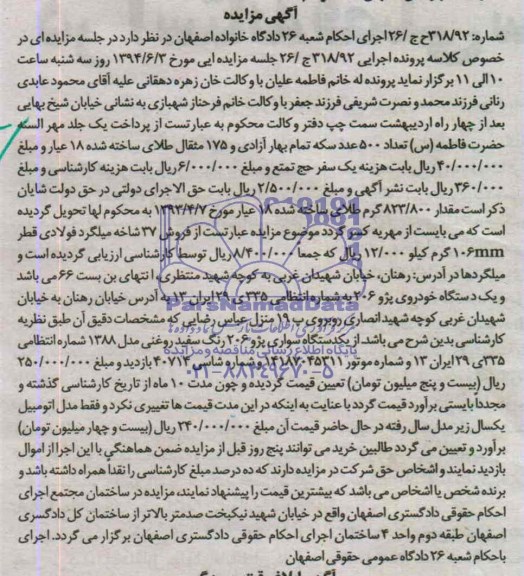 آگهی مزایده
شماره: ۳۱۸/۹۲ح ج /۲۶ اجرای احکام شعبه ۲۶ دادگاه خانواده اصفهان در نظر دارد در جلسه مزایده ای در
خصوص کلاسه پرونده اجرایی ۳۱۸/۹۲ ج /۲۶ جلسه مزایده ایی مورخ ۱۳۹۴/۶/۳ روز سه شنبه ساعت
۱۰ الی ۱۱ برگزار نماید پرونده له خانم فاطمه علیان با وکالت خان زهره دهقانی علیه آقای محمود عابدی
رنانی فرزند محمد و نصرت شریفی فرزند جعفر با وکالت خانم فرحناز شهبازی به نشانی خیابان شیخ بهایی
بعد از چهار راه اردیبهشت سمت چپ دفتر وکالت محکوم به عبارتست از پرداخت یک جلد مهر السنه
حضرت فاطمه (س) تعداد ۵۰۰ عدد سکه تمام بهار آزادی و ۱۷۵ مثقال طلای ساخته شده ۱۸ عیار و مبلغ
۴۰/۰۰۰/۰۰۰ ریال بابت هزینه یک سفر حج تمتع و مبلغ ۶/۰۰۰/۰۰۰ ریال بابت هزینه کارشناسی و مبلغ
۳۶۰/۰۰۰ ریال بابت نشر آگهی و مبلغ ۲/۵۰۰/۰۰۰ ریال بابت حق الاجرای دولتی در حق دولت شایان
ذکر است مقدار ۸۲۳/۸۰۰ گرم طلای ساخته شده ۱۸ عیار مورخ ۱۳۹۲/۴/۷ به محکوم لها تحویل گردیده
است که می بایست از مهریه کسر گردد موضوع مزایده عبارتست از فروش ۳۷ شاخه میلگرد فولادی قطر
۱۰۶mm گرم کیلو ۱۲/۰۰۰ ریال که جمعا ۸/۴۰۰/۰۰۰ ریال توسط کارشناسی ارزیابی گردیده است و
میلگردها در آدرس: رهنان، خیابان شهیدان غربی به کوچه شهید منتظری انتهای بن بست ۶۶ می باشد
و یک دستگاه خودروی پژو ۲۰۶ به شماره انتظامی ۳۳۵ی ۲۹ ایران ۱۳ به آدرس خیابان رهنان به خیابان
شهیدان غربی کوچه شهید انصاری روبروی پ ۱۹ منزل عباس رضایی که مشخصات دقیق آن طبق نظریه
کارشناسی بدین شرح می باشد. از یکدستگاه سواری پژو ۲۰۶ رنگ سفید روغنی مدل ۱۳۸۸ شماره انتظامی
۳۳۵ی ۲۹ ایران ۱۳ و شماره موتور ۱۴۱۸۷۰۴۵۳۱۱ و شماره شاسی ۴۰۷۱۳ بازدید و مبلغ ۲۵۰/۰۰۰/۰۰۰
ریال (بیست و پنج میلیون تومان) تعیین قیمت گردیده و چون مدت ۱۰ ماه از تاریخ کارشناسی گذشته و
مجددا بایستی برآورد قیمت گردد با عنایت به اینکه در این مدت قیمت ها تغییری نکرد و فقط مدل اتومبیل
یکسال زیر مدل سال رفته در حال حاضر قیمت آن مبلغ ۲۴۰/۰۰۰/۰۰۰ ریال (بیست و چهار میلیون تومان)
برآورد و تعیین می گردد طالبین خرید می توانند پنج روز قبل از مزایده ضمن هماهنگی با این اجرا از اموال
بازدید نمایند و اشخاص حق شرکت در مزایده دارند که ده درصد مبلغ کارشناسی را نقدا همراه داشته باشد و
برنده شخص یا اشخاص می باشد که بیشترین قیمت را پیشنهاد نمایند، مزایده در ساختمان مجتمع اجرای
احکام حقوقی دادگستری اصفهان واقع در خیابان شهید نیکبخت صدمتر بالاتر از ساختمان کل دادگستری
اصفهان طبقه دوم واحد ۴ ساختمان اجرای احکام حقوقی دادگستری اصفهان برگزار می گردد. اجرای
باحکام شعبه ۲۶ دادگاه عمومی حقوقی اصفهان
ParsNamadData
پایگاه اطلاع رسانی مناقصه و مزایده
۰۲۱-۸۸۳۴۹۶۷۰-۵